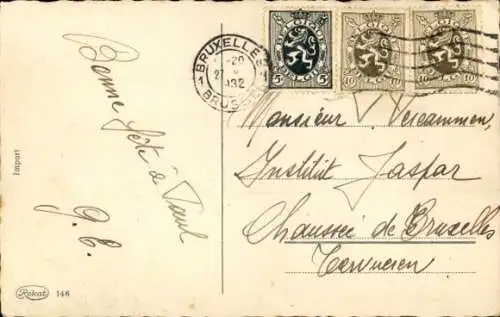 Bonne
fête à Paul
G. C.
Import
Rekat 146
BRUXELLES
-20
27
1 1
1932
BRUSSEL
BELGIQUE
BELGIË
5 5
BELGIQUE
BELGIË
10 10
BELGIQUE
BELGIË
10 10
Monsieur V. Vercammen,
Institut Jaspar
Chaussée de Bruxelles
Tervueren